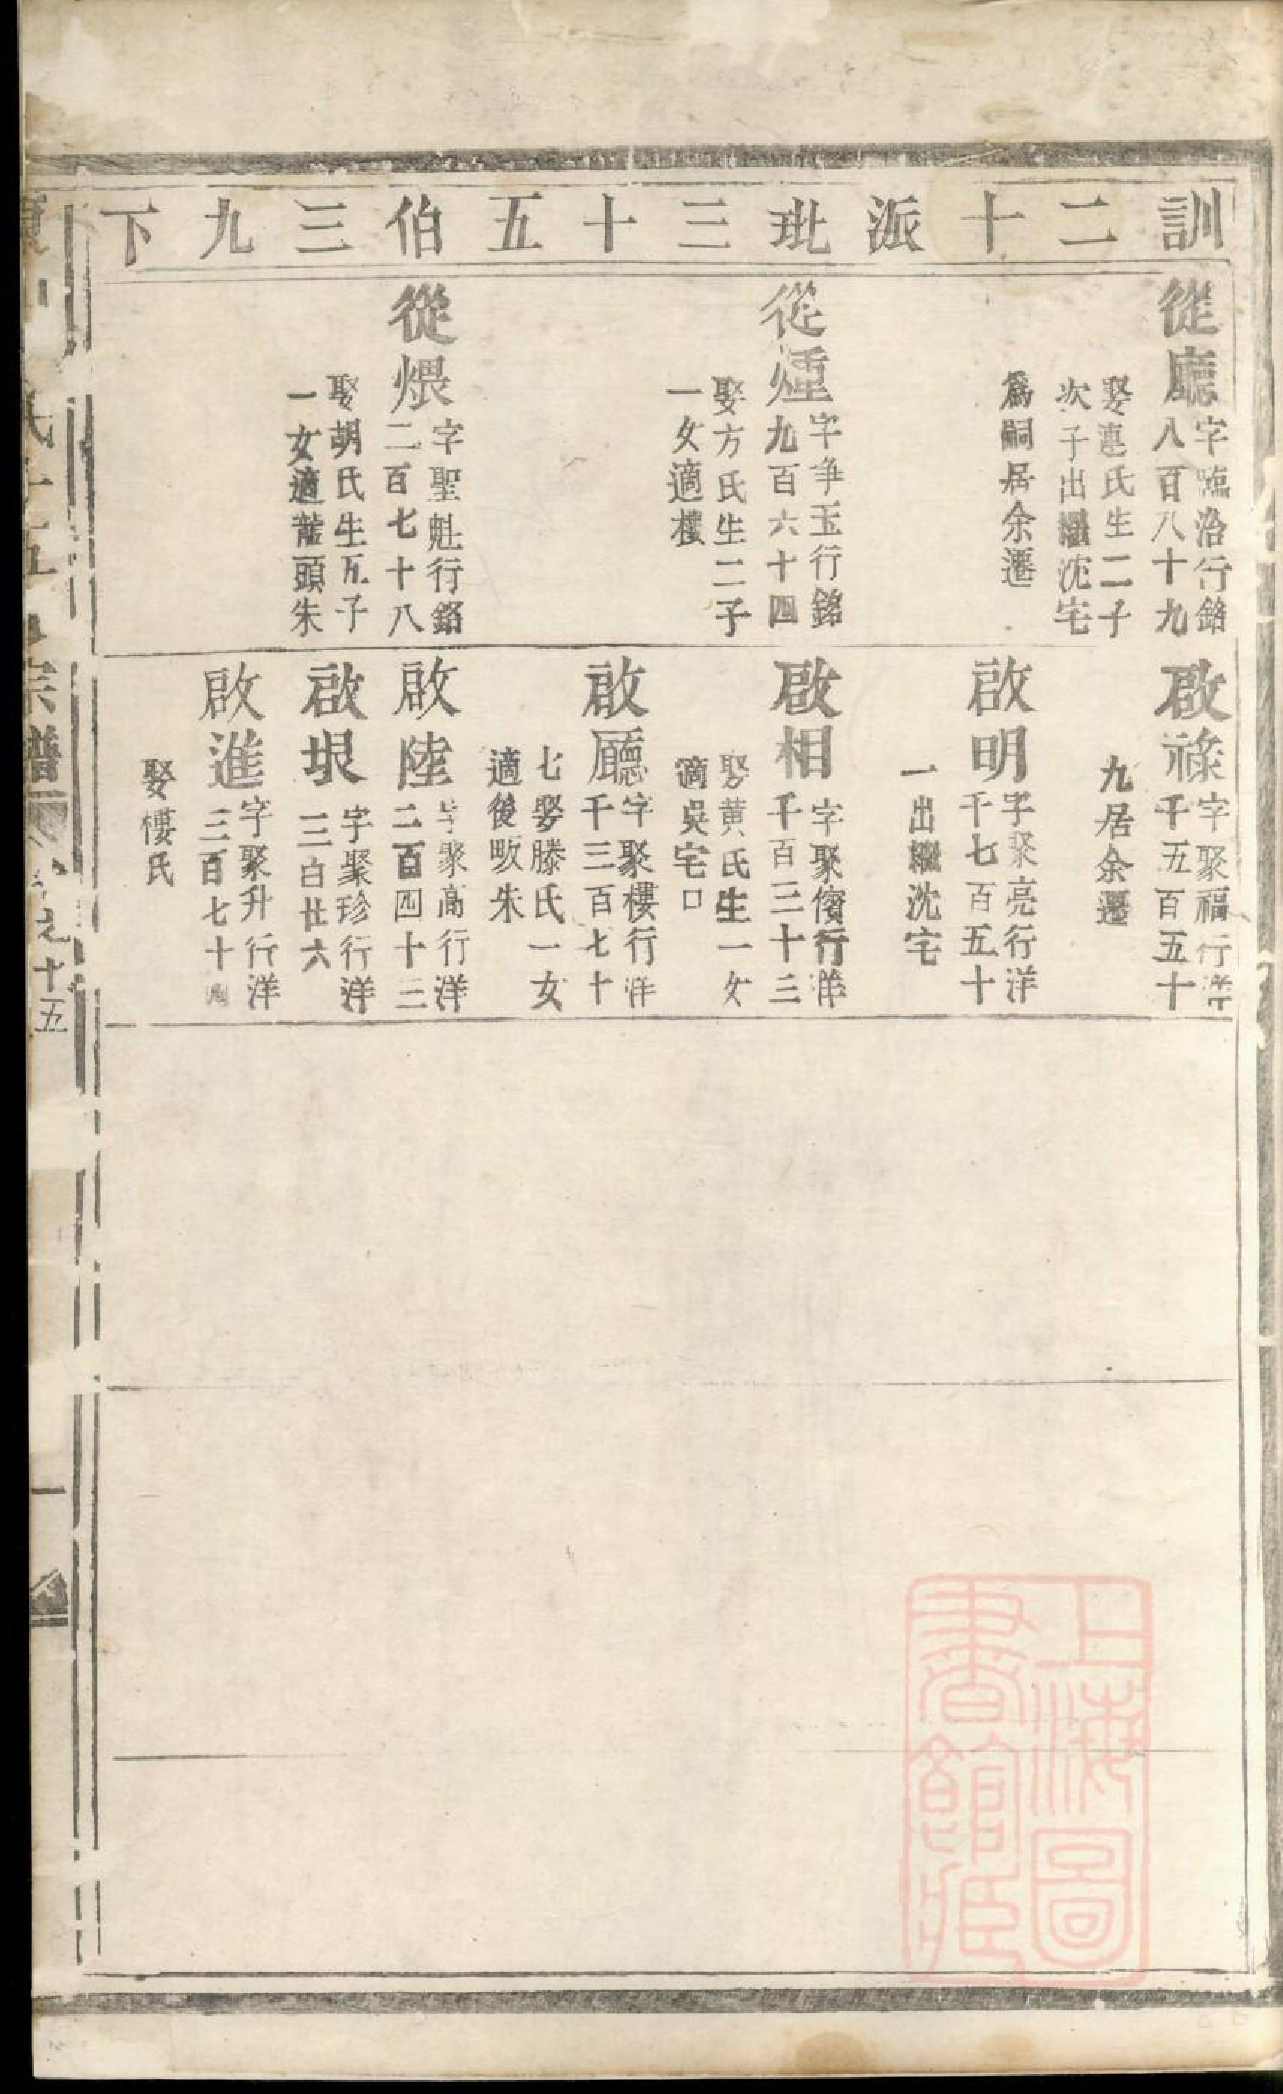 訓二十派玭三十五伯三九下
從廳
字臨洛行銘
八百八十九
娶連氏生二子
次子出繼沈宅
爲嗣居余遷
從煙
字爭玉行銘
九百六十四
娶方氏生二子
一女適樓
從煨
字聖魁行銘
二百七十八
娶胡氏生五子
一女適龍頭朱
啟祿
字聚福行洋
千五百五十
九居余遷
啟明
字聚亮行洋
千七百五十
一出繼沈宅
啟相
字聚儐行洋
千百三十三
娶黃氏生一女
適吳宅口
啟廳
字聚樓行洋
千三百七十
七娶滕氏一女
適後畈朱
啟陸
字聚高行洋
二百四十三
啟垠
字聚珍行洋
三百廿六
啟進
字聚升行洋
三百七十
娶樓氏
宗譜
卷之十五
上海圖
書館藏